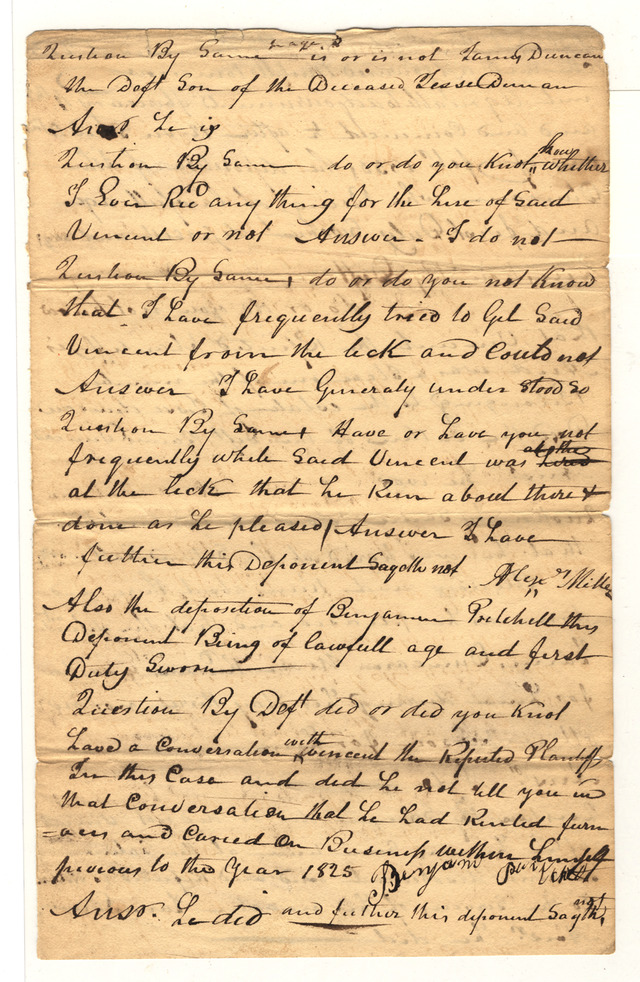 Question By Same is or is not James Duncan
the Deft Son of the Deceased Jesse Duncan
Answ he is
Question By Same do or do you Knot know whether
I Ever Recd any thing for the hire of Said
Vincent or not Answer - I do not
Question By Same, do or do you not Know
that I have frequently tried to Get Said
Vincent from the lick and Could not
Answer I have Generaly under stood so
Question By Same Have or have you not
frequently while Said Vincent was
at the lick that he Run about there &
done as he pleased Answer I have
futher this Deponent Sayeth not Alexr Miller
Also the deposition of Benjamin Pritchell this
Deponent Being of lawfull age and first
Duly Sworn
Question By Deft did or did you Knot
have a Conversation with vincent the Reputed Plantiff
In this Case and did he not tell you in
that Conversation that he had Rented furn
=aces and Caried On Business himself
previous to the Year 1825 Benjam
Answ. he did and futher this deponent Sayth not